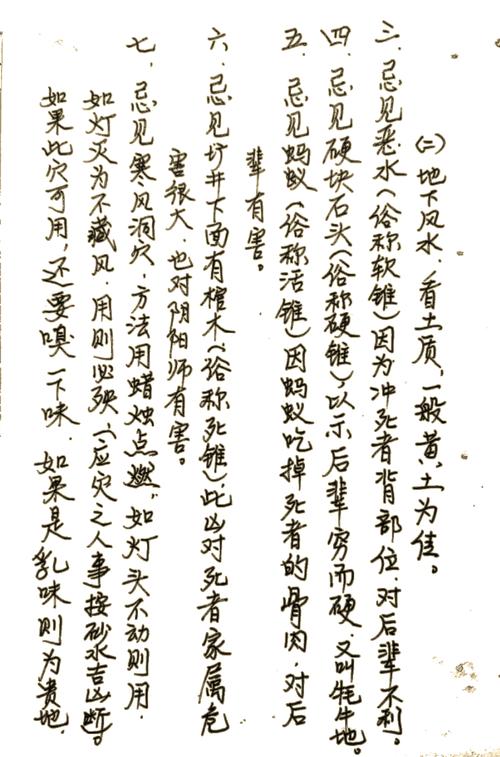 (二)地下风水,看土质,一般黄土为佳。
三、忌见恶水(俗称软锥)因为冲死者背部位,对后辈不利。
四、忌见硬块石头(俗称硬锥),以示后辈穷而硬,又叫牦牛地。
五、忌见蚂蚁(俗称活锥)因蚂蚁吃掉死者的骨肉,对后
辈有害。
六、忌见圹井下面有棺木(俗称死锥),此凶对死者家属危
害很大,也对阴阳师有害。
七、忌见寒风洞穴,方法用蜡烛点燃,如灯头不动则用,
如灯灭为不藏风,用则必殃,(应灾之人事按砂水吉凶断)。
如果此穴可用,还要嗅一下味,如果是乳味则为贵地,